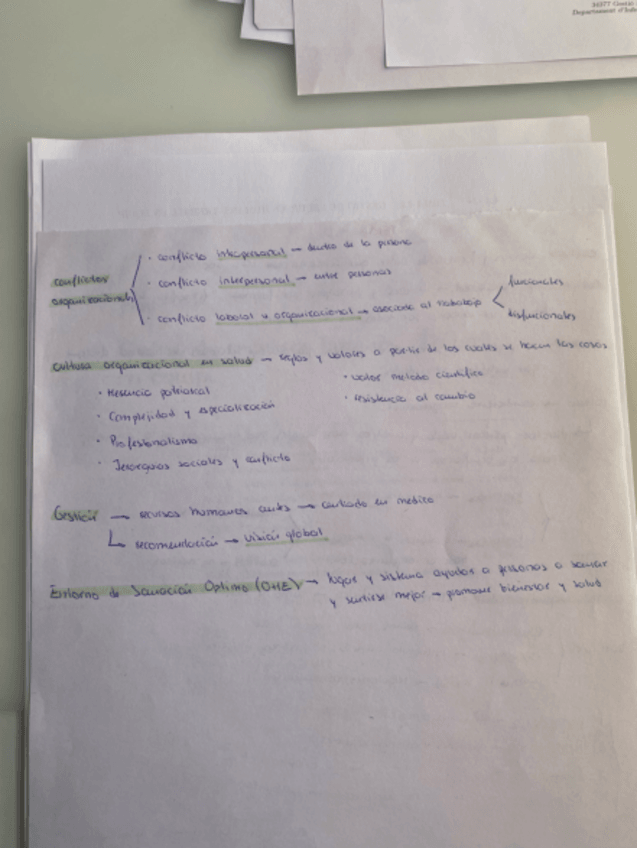 34077 
Department of
conflictos organizacionales
· conflicto intrapersonal → dentro de la persona
· conflicto interpersonal → entre personas
· conflicto laboral u organizacional → asociado al trabajo
funcionales
disfuncionales
Cultura organizacional en salud → reglas y valores a partir de los cuales se hacen las cosas
· Herencia patriarcal
· Complejidad y especialización
· Profesionalismo
· Jerarquías sociales y conflicto
· valor método científico
· resistencia al cambio
Gestión → recursos humanos antes → centrado en médico
↳ recomendación → visión global
Entorno de Sanación Óptimo (OHE) → lugar y sistema ayudar a personas a sanar
y sentirse mejor → promover bienestar y salud